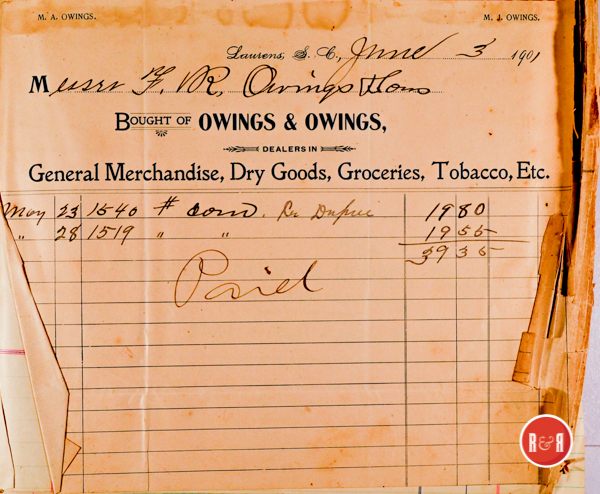 M. A. OWINGS. M. J. OWINGS.
Laurens, S. C., June 3 1901
Messrs F. R. Owings & Sons
BOUGHT OF OWINGS & OWINGS,
DEALERS IN
General Merchandise, Dry Goods, Groceries, Tobacco, Etc.
May 23 1540 # corn. 19 80
" 28 1519 " " 19 55
39 35
Paid
R&R